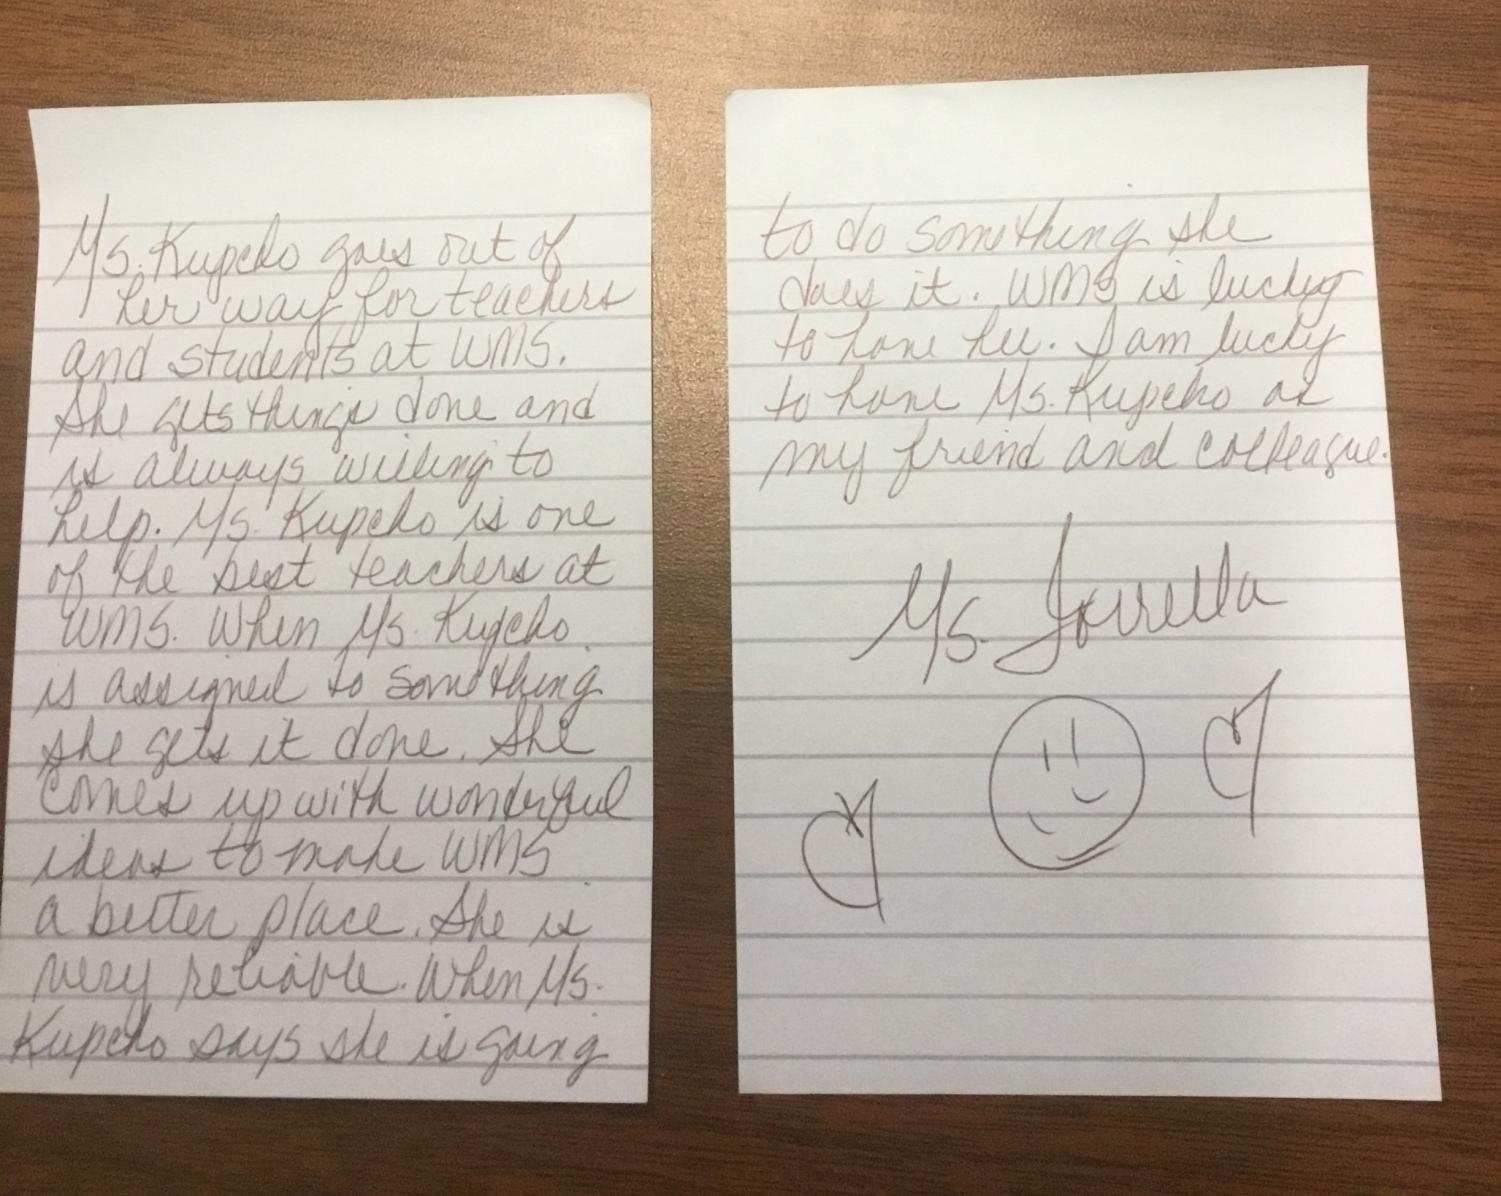 Ms. Kupcho goes out of
her way for teachers
and students at WMS.
She gets things done and
is always willing to
help. Ms. Kupcho is one
of the best teachers at
WMS. When Ms. Kupcho
is assigned to something
she gets it done. She
comes up with wonderful
ideas to make WMS
a better place. She is
very reliable. When Ms.
Kupcho says she is going
to do something she
does it. WMS is lucky
to have her. I am lucky
to have Ms. Kupcho as
my friend and colleague.
Ms.